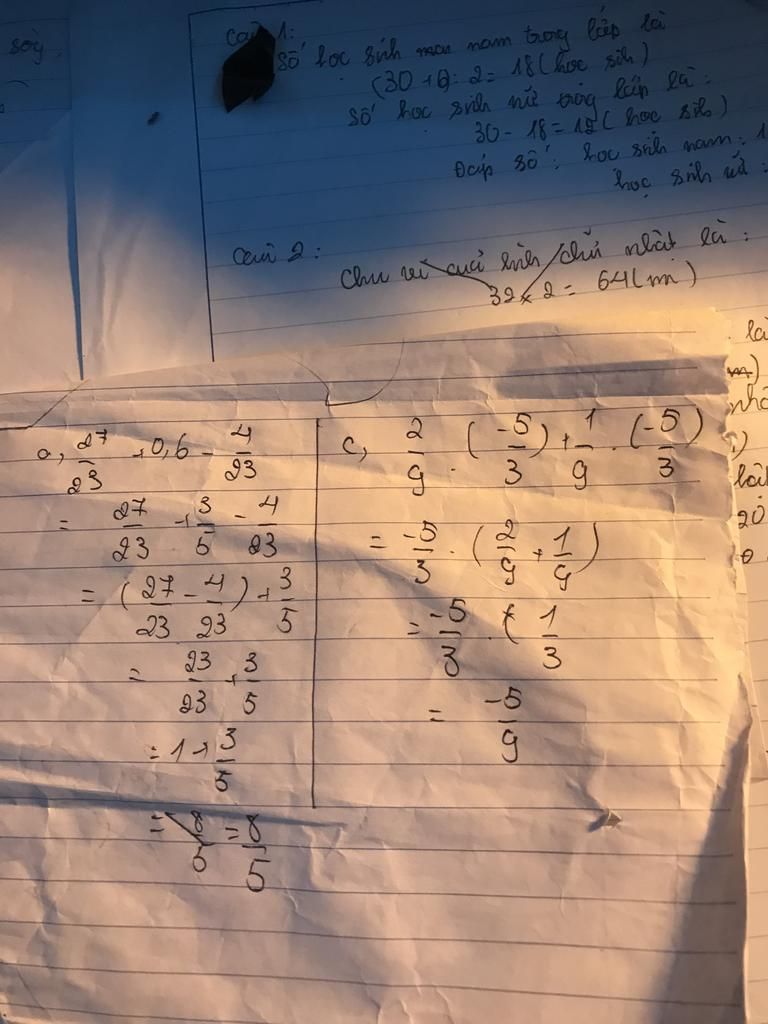 Câu 1:
Số học sinh nam trong lớp là
(30 + 6): 2 = 18 (học sinh)
Số học sinh nữ trong lớp là:
30 - 18 = 12 (học sinh)
Đáp số: học sinh nam: 1
học sinh nữ:
Câu 2:
Chu vi của hình chữ nhật là:
32 x 2 = 64 (m)
a, 27/23 + 0,6 - 4/23
= 27/23 + 3/5 - 4/23
= (27/23 - 4/23) + 3/5
= 23/23 + 3/5
= 1 + 3/5
= 8/5 = 8/5
c, 2/9 . (-5/3) + 1/9 . (-5/3)
= -5/3 . (2/9 + 1/9)
= -5/3 . ( 1/3
= -5/9
là
m)
20